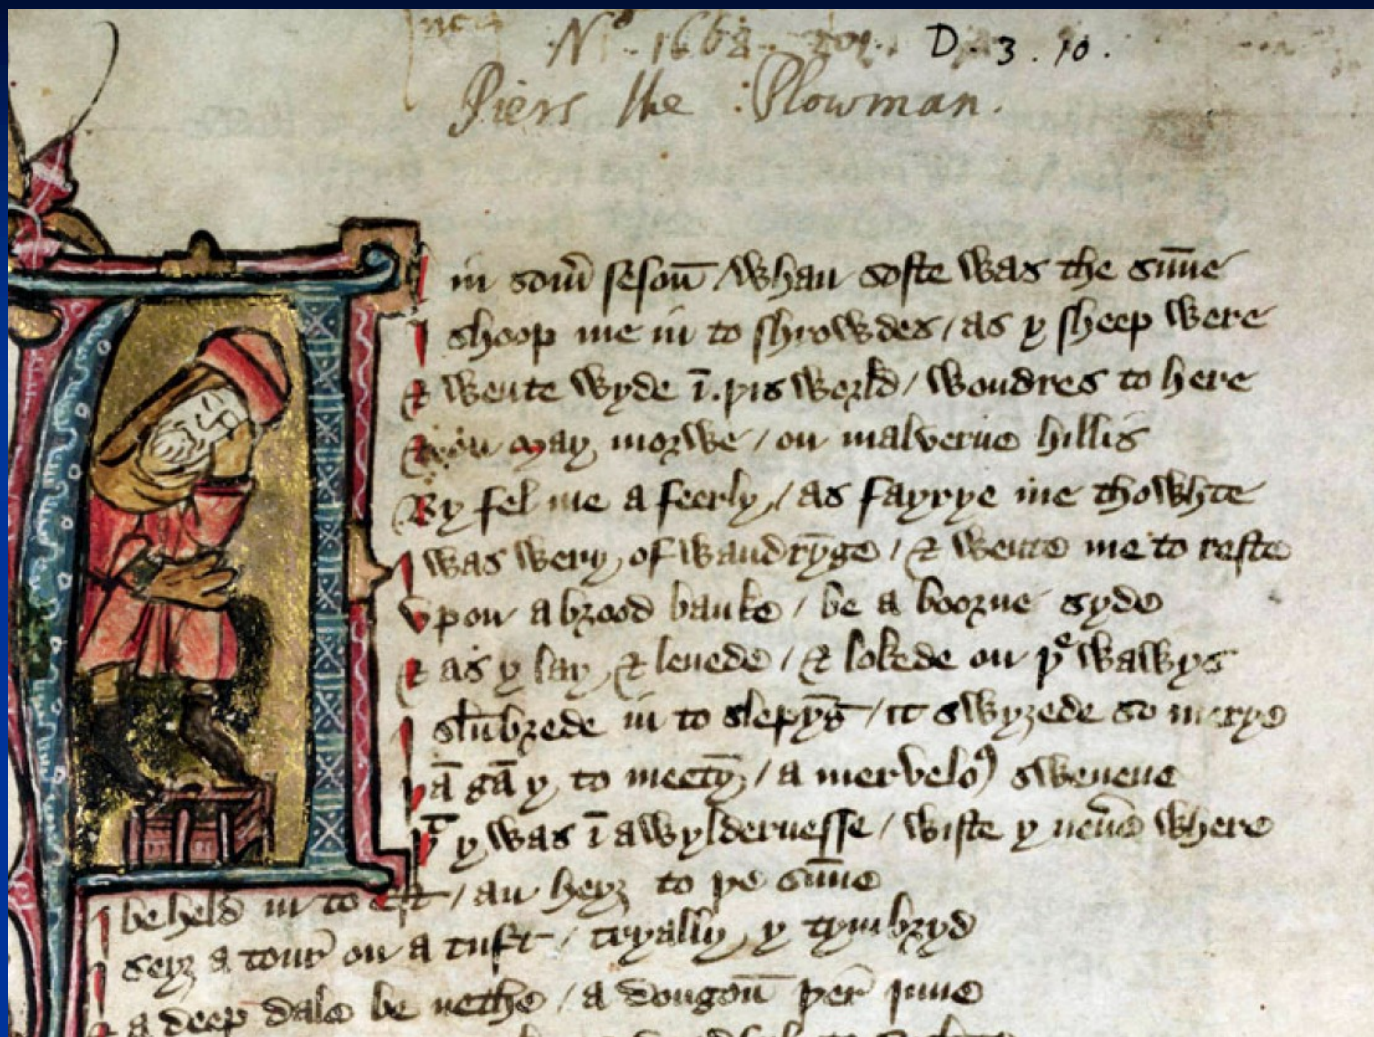 Nº. 1668. D. 3. 10.
Piers the Plowman.
in som̄ sesoū / whan softe was the sūne
I shoop me in to shrowdes / as y sheep were
& wente wyde ī. þis world / wondres to here
on may morwe / on malverne hillis
By fel me a feerly / as fayrye me thowhte
I was wery of wandrȳge / & wente me to reste
vpon a brood banke / be a boorne syde
& as y lay & lenede / & lokede on þe wawys
I slūbrede in to slepȳg / it swyȝede so merye
þā gā y to meetȳ / a mervelo9 swevene
þt y was ī a wyldernesse / wiste y nevē where
I beheld in to est / an heyȝ to þe sūne
I seyȝ a tour on a tuft / tryally y tymbryd
& a deep dale be nethe / a dongoū þer inne